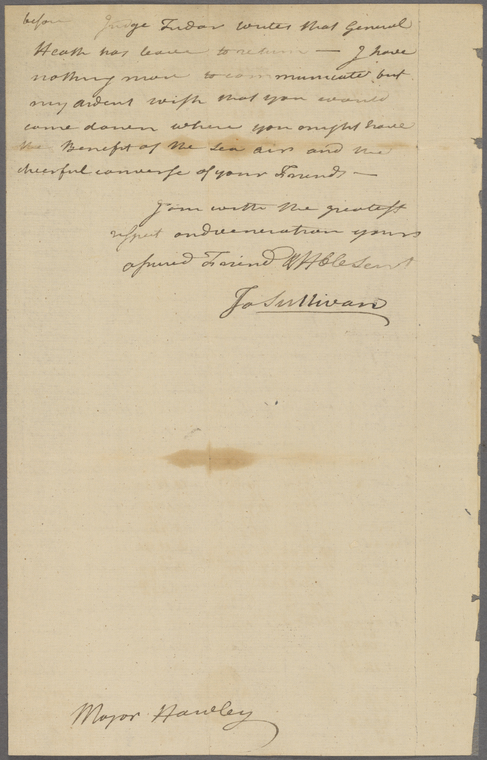 before Judge Tudor writes that General
Heath has leave to return — I have
nothing more to communicate but
my ardent wish that you would
come down where you might have
the Benefit of the Sea airs and the
cheerful converse of your Friends —
I am with the greatest
respect and veneration yours
assured Friend & Hble Servt
Ja Sullivan
Major Hawley